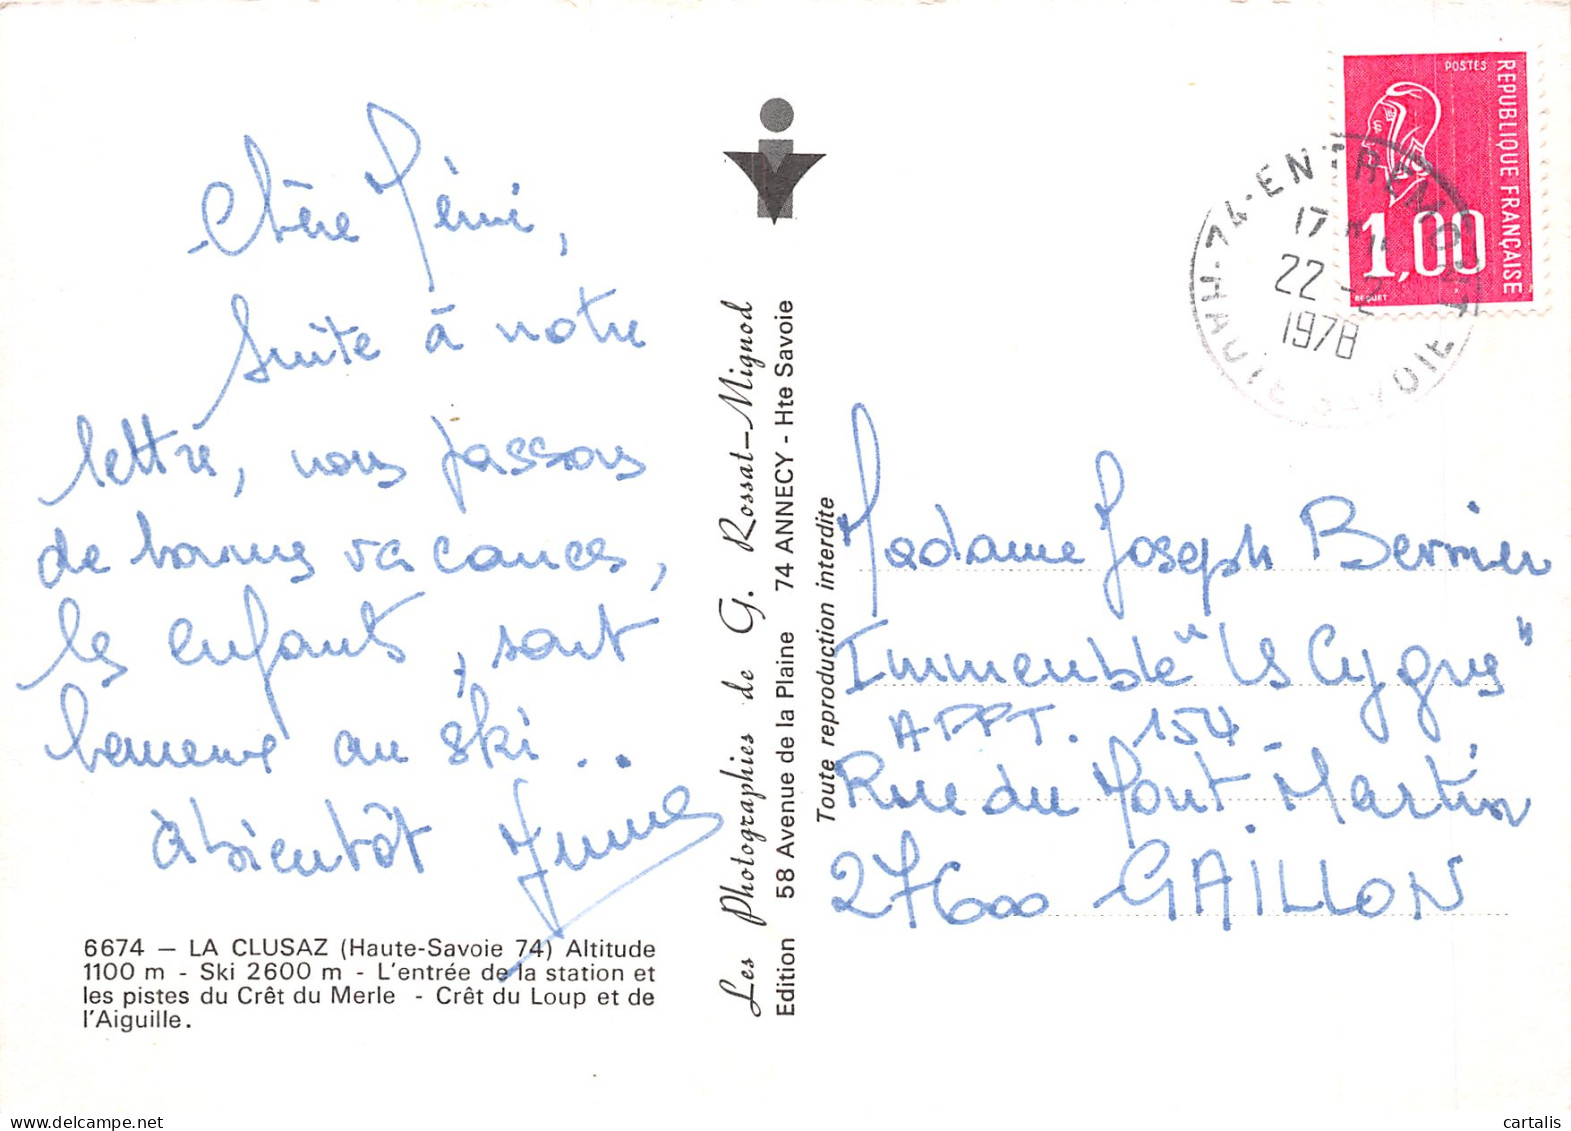 Chère Mémé,
suite à notre
lettre, nous passons
de bonnes vacances,
les enfants, sont
heureux au ski..
à bientôt
6674 — LA CLUSAZ (Haute-Savoie 74) Altitude
1100 m - Ski 2600 m - L'entrée de la station et
les pistes du Crêt du Merle - Crêt du Loup et de
l'Aiguille.
Les Photographies de G. Rossat-Mignod
Edition 58 Avenue de la Plaine 74 ANNECY - Hte Savoie
Toute reproduction interdite
POSTES
REPUBLIQUE FRANÇAISE
1,00
BEQUET
74-ENTREMONT
17H
22 -2
1978
HAUTE SAVOIE
Madame Joseph Bernier
Immeuble "Les Cygnes"
APPT. 154
Rue du Mont-Martin
27600 GAILLON
cartalis